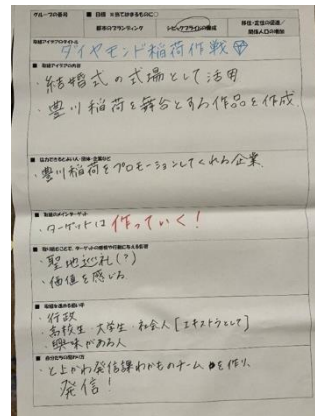 グループの番号
■ 目標 ※当てはまるものに○
都市のブランディング
シビックプライドの醸成
移住・定住の促進/
関係人口の増加
取組アイデアのタイトル
ダイヤモンド稲荷作戦
■ 取組アイデアの内容
・結婚式の式場として活用
・豊川稲荷を舞台とする作品を作成
■ 協力できるとよい人・団体・企業など
・豊川稲荷をプロモーションしてくれる企業
■ 取組のメインターゲット
・ターゲットは作っていく!
・聖地巡礼(?)
・価値を感じる
・行政
・高校生・大学生・社会人[エキストラとして]
・興味がある人
■ 自分たちの関わり方
・とよかわ発信課わかものチームを作り、
発信!